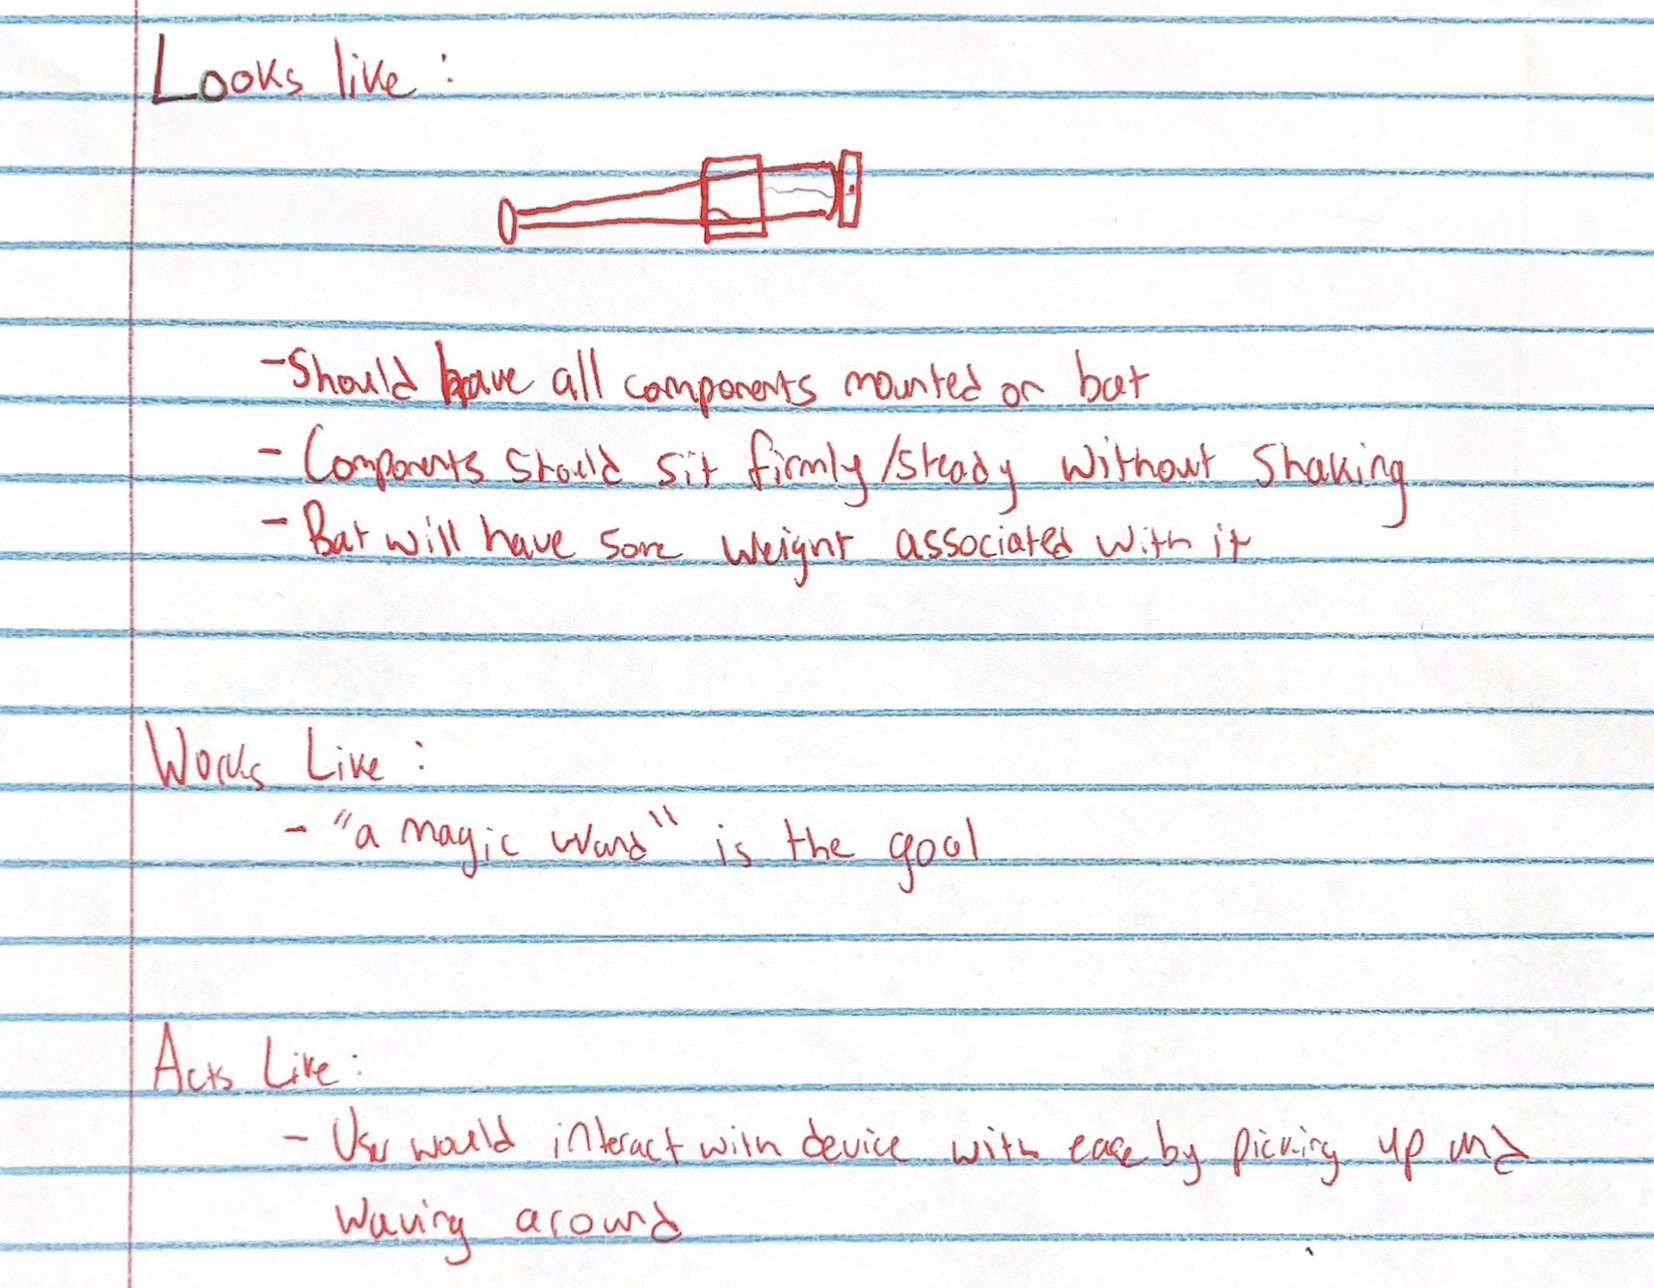 Looks like :
- Should have all components mounted on bat
- Components should sit firmly/steady without shaking
- Bat will have some weight associated with it
Works Like :
- "a magic wand" is the goal
Acts Like :
- User would interact with device with ease by picking up and
waving around